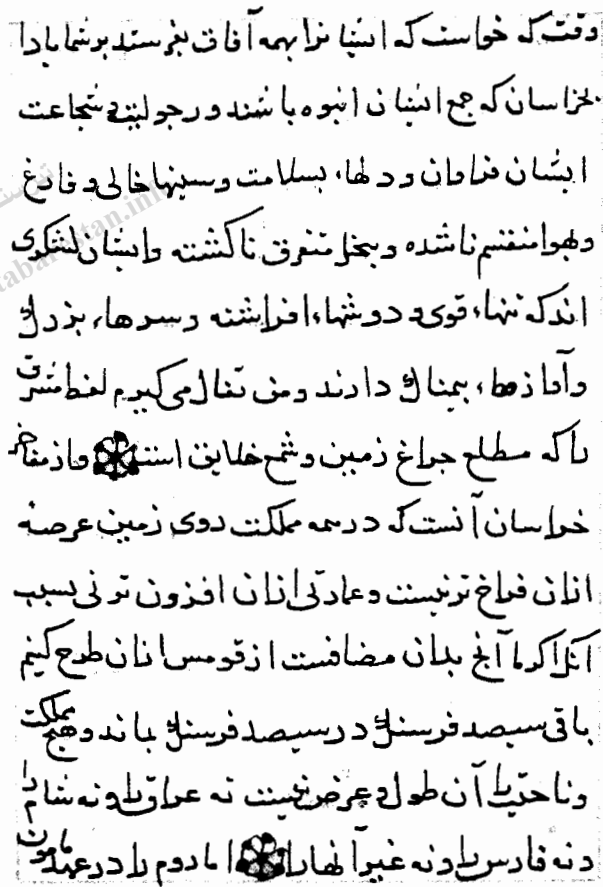 وقت که خواست که ایشانرا بهمه آفاق بفرستد برشما بادا
بخراسان که جمع ایشان انبوه باشند و رجولیت و شجاعت
ایشان فراوان و دلها، بسلامت و سینها خالی و فارغ
و بهوا منقسم ناشده و بنحل متفرق ناکشته و ایشان لشکری
اند که تنها، قوی و دوشها، افراشته و سرها، بزرك
و آوازها، بیمناك دارند و من تفال می‌کیرم لفظ مشرق
را که مطلع چراغ زمین و شمع خلایق است و از مفاخر
خراسان آنست که در همه مملکت روی زمین عرصهٔ
ازان فراخ تر نیست و عمارتی ازان افزون تر نی بسبب
آنك اکر ما آنج بدان مضافست از قومس ازان طرح کنیم
باقی سیصد فرسنك در سیصد فرسنك بماند و هیچ مملکت
و ناحیت را آن طول و عرض نیست نه عراق را و نه شام را
و نه فارس را و نه غیر آنها را اما روم را در عهد مامون